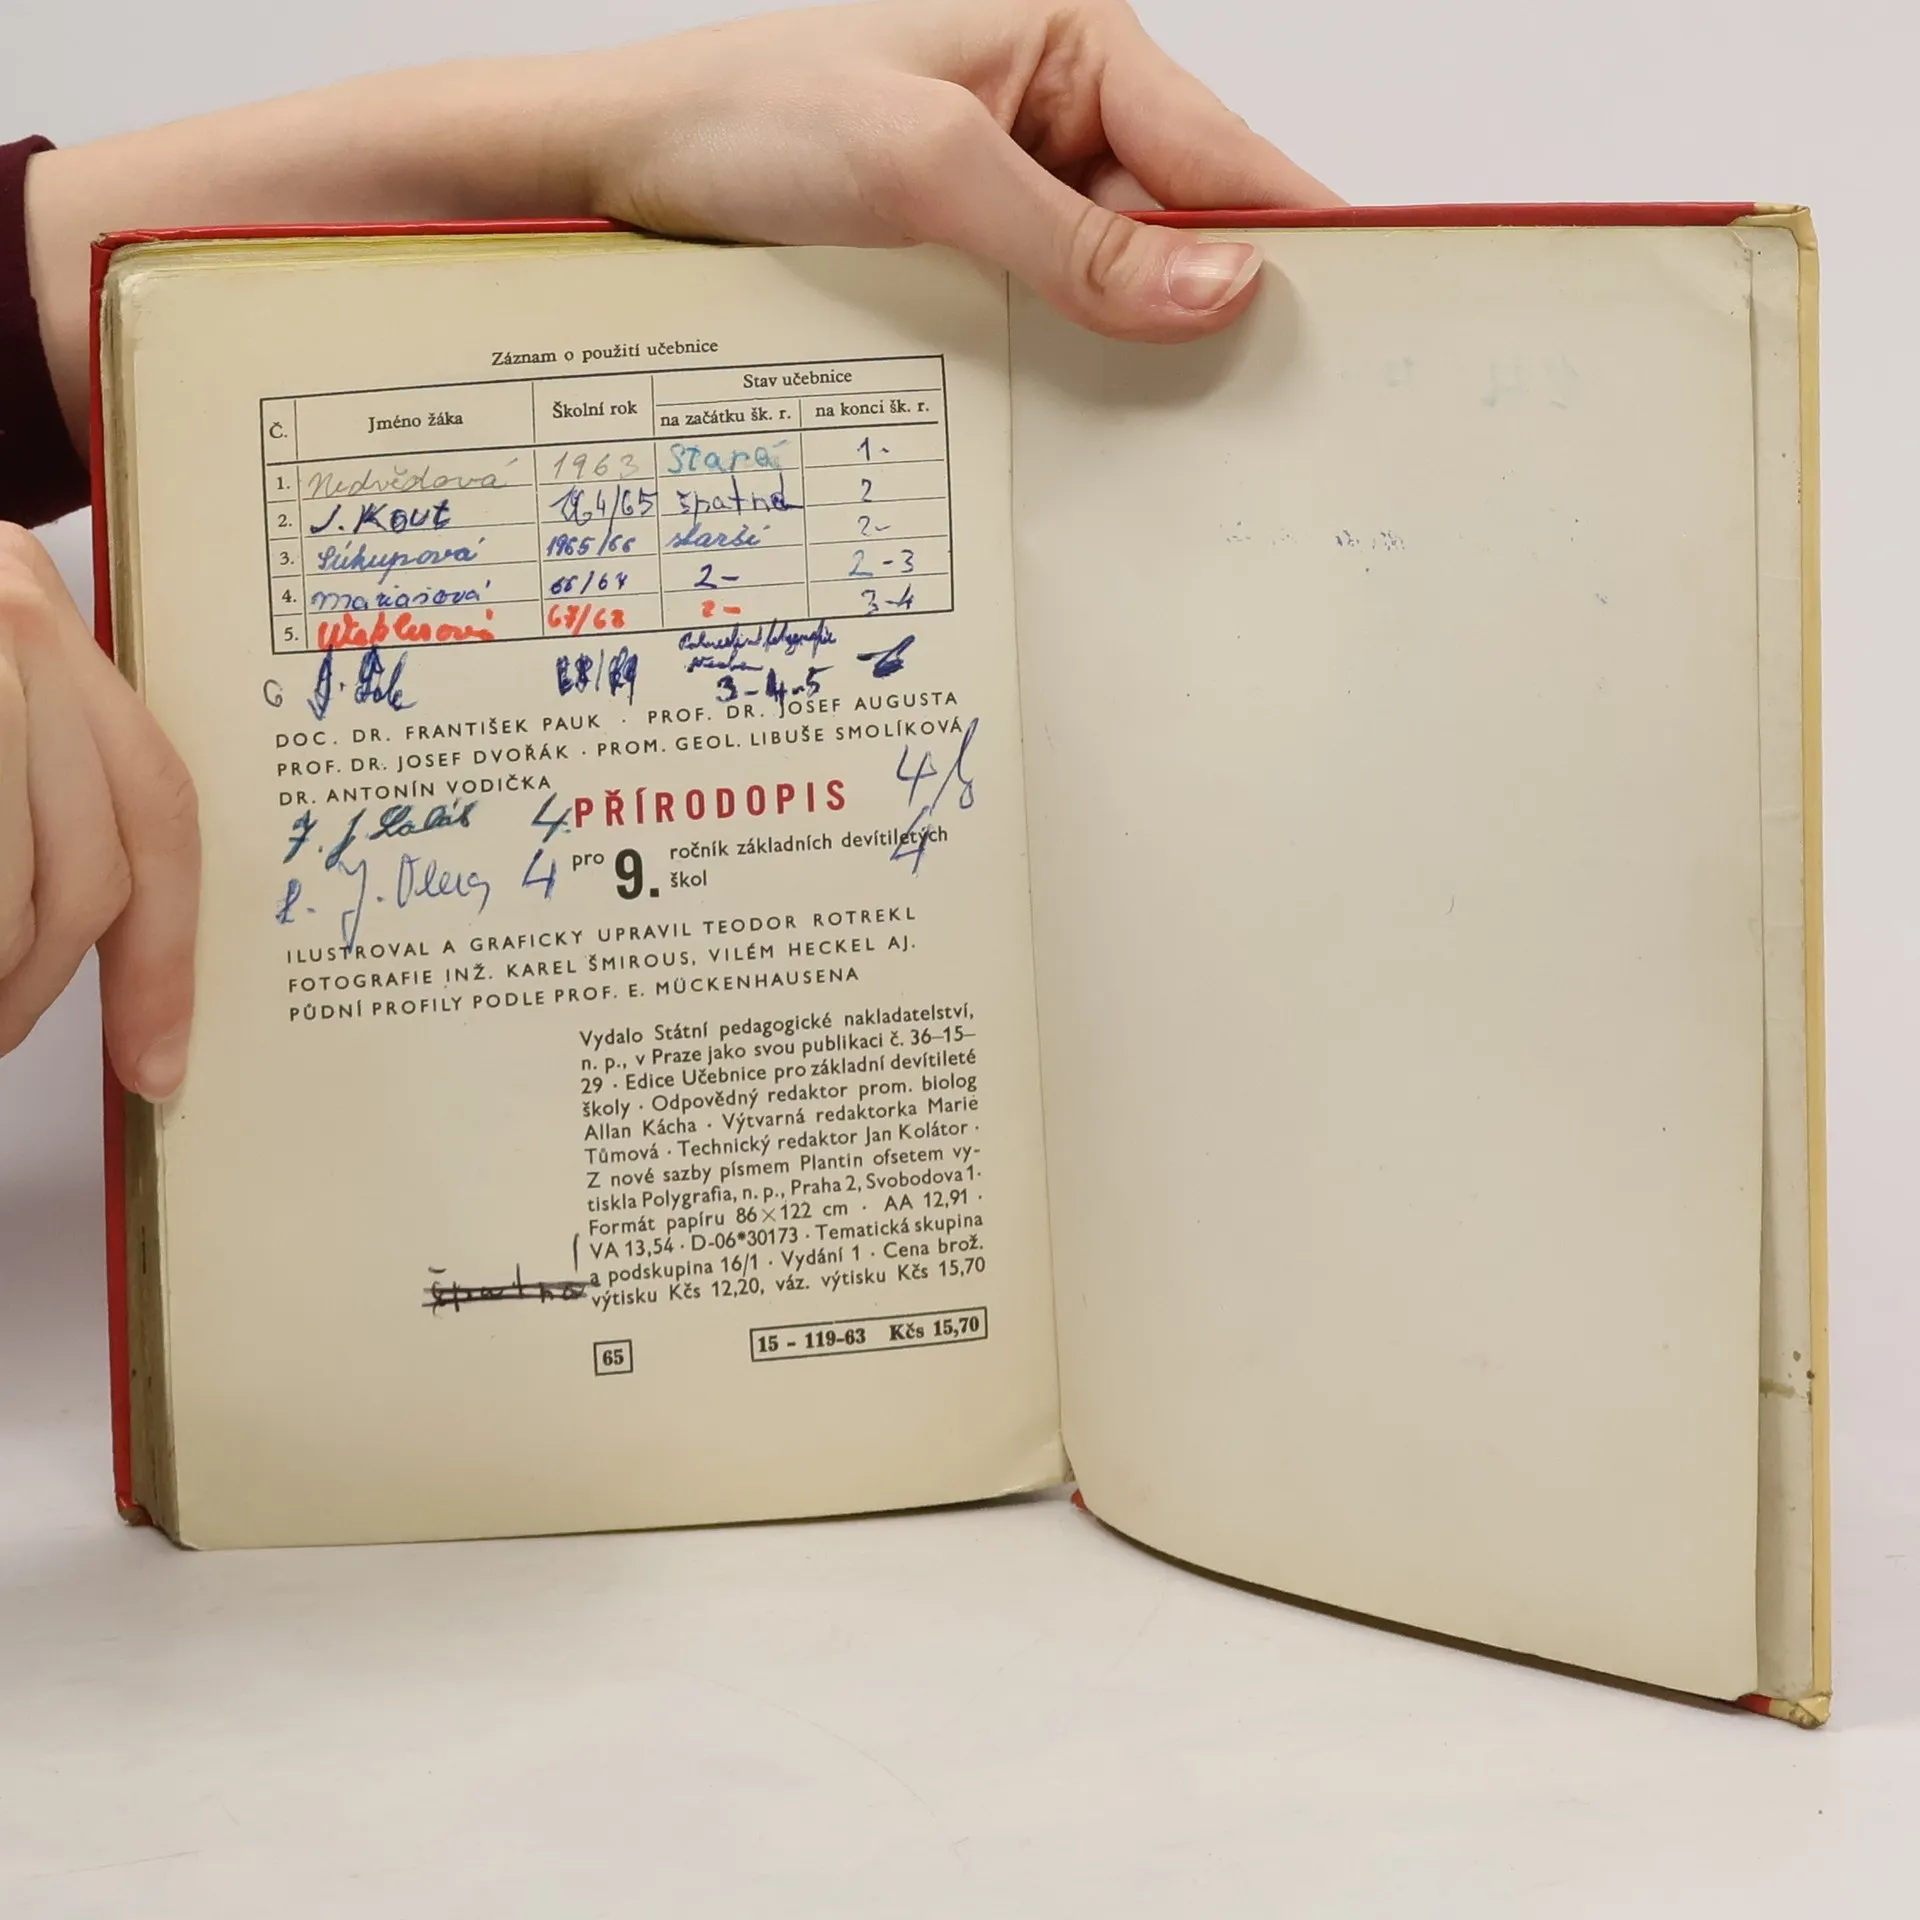 Záznam o použití učebnice
Č. Jméno žáka Školní rok Stav učebnice
na začátku šk. r. na konci šk. r.
1. Nedvědová 1963 Stará 1-
2. J. Kout 1964/65 špatná 2
3. Súkupová 1965/66 starší 2-
4. 66/67 2- 2-3
5. 67/68 2- 3-4
6 68/69 3-4-5
DOC. DR. FRANTIŠEK PAUK · PROF. DR. JOSEF AUGUSTA
PROF. DR. JOSEF DVOŘÁK · PROM. GEOL. LIBUŠE SMOLÍKOVÁ
DR. ANTONÍN VODIČKA
7. J. 4 PŘÍRODOPIS 4
J. 4 pro 9. ročník základních devítiletých 4
škol
ILUSTROVAL A GRAFICKY UPRAVIL TEODOR ROTREKL
FOTOGRAFIE INŽ. KAREL ŠMIROUS, VILÉM HECKEL AJ.
PŮDNÍ PROFILY PODLE PROF. E. MÜCKENHAUSENA
Vydalo Státní pedagogické nakladatelství,
n. p., v Praze jako svou publikaci č. 36–15–
29 · Edice Učebnice pro základní devítileté
školy · Odpovědný redaktor prom. biolog
Allan Kácha · Výtvarná redaktorka Marie
Tůmová · Technický redaktor Jan Kolátor ·
Z nové sazby písmem Plantin ofsetem vy-
tiskla Polygrafia, n. p., Praha 2, Svobodova 1·
Formát papíru 86×122 cm · AA 12,91 ·
VA 13,54 · D-06*30173 · Tematická skupina
a podskupina 16/1 · Vydání 1 · Cena brož.
špatná výtisku Kčs 12,20, váz. výtisku Kčs 15,70
65 15 - 119-63 Kčs 15,70